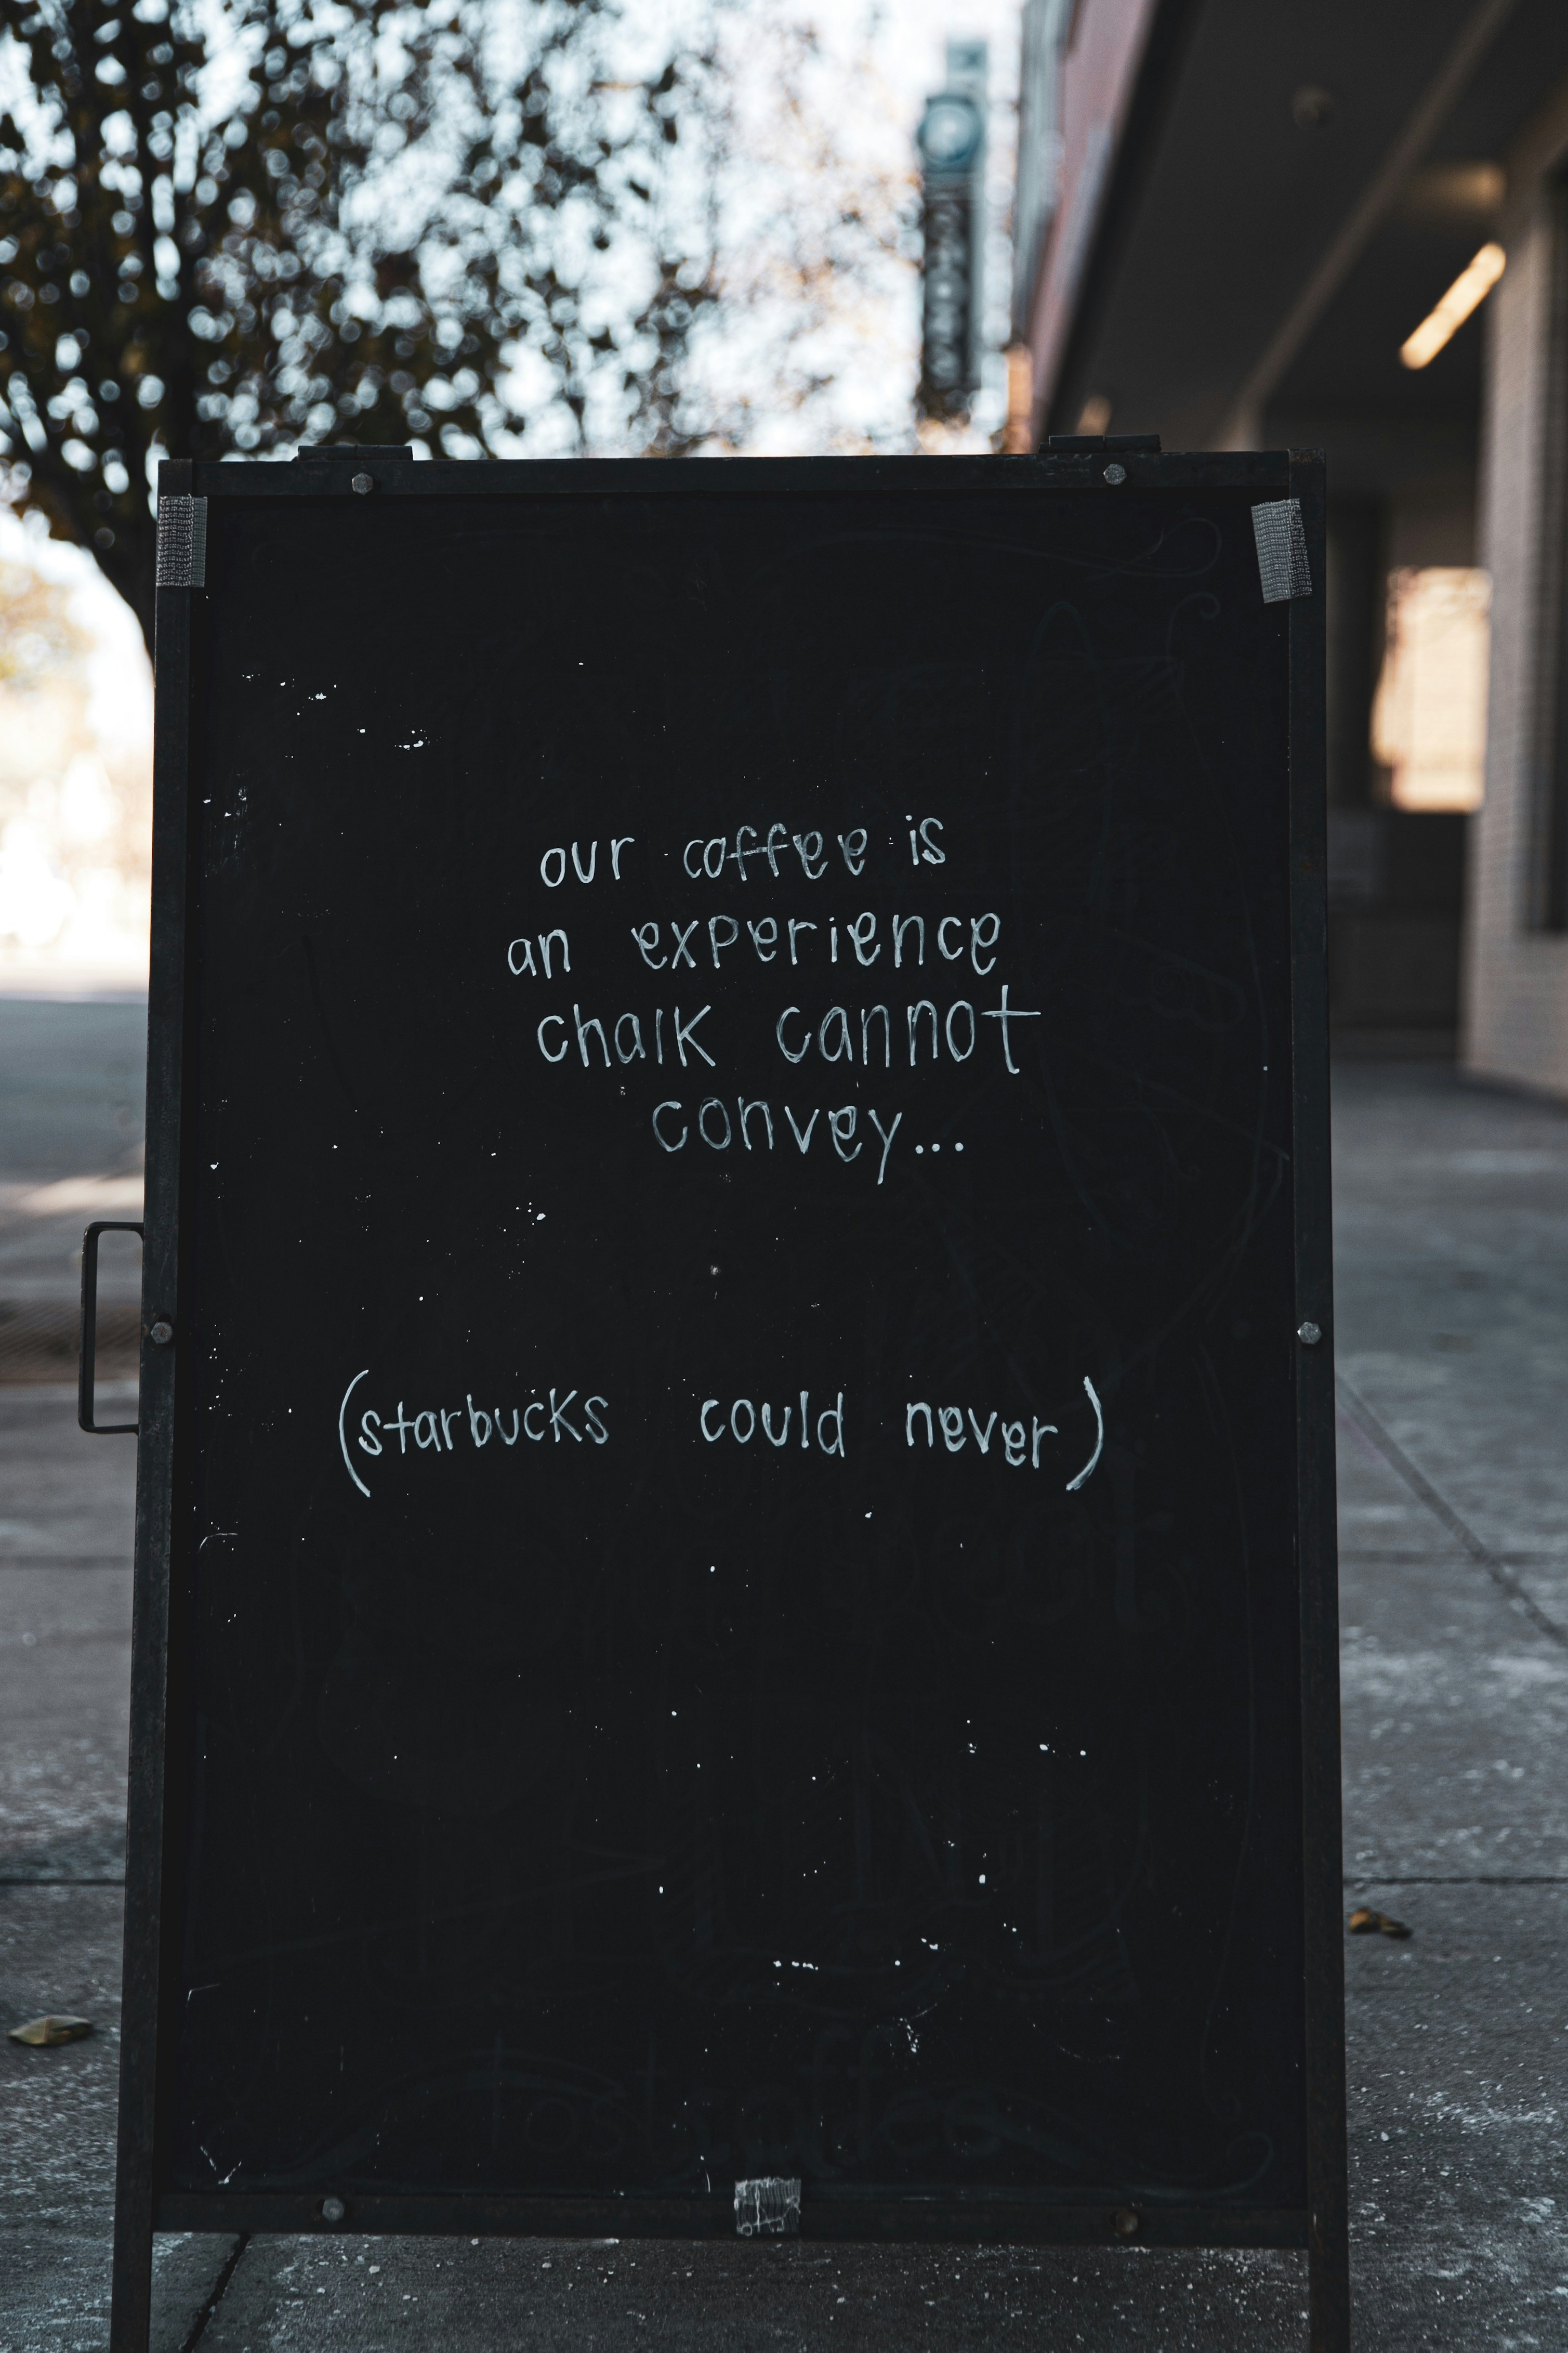 our coffee is
an experience
chalk cannot
convey...
(starbucks could never)